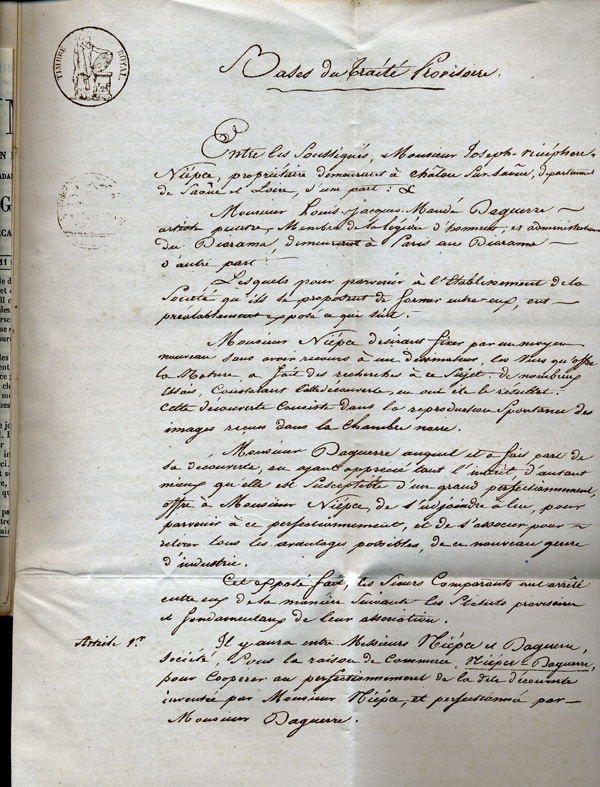 TIMBRE ROYAL.
Bases du Traité Provisoire.
Entre les Soussignés, Monsieur Joseph-nicéphore
Niépce, propriétaire demeurant à châlon Sur Saône, departement
de Saône et Loire, d'une part : &
Monsieur Louis-Jacques-Mandé Daguerre
artiste peintre, Membre de la légion d'honneur, et administrateur
du Diorama, demeurant à Paris au Diorama
d'autre part :
Lesquels pour parvenir à l'Etablissement de la
Société qu'ils se proposent de former entre eux, ont
préalablement exposé ce qui suit :
Monsieur Niépce désirant fixer par un moyen
nouveau sans avoir recours à un dessinateur, les vues qu'offre
la Nature, a fait des recherches à ce Sujet: de nombreux
Essais, Constatant cette découverte, en ont été le résultat.
cette découverte Consiste dans la reproduction Spontanée des
images reçues dans la Chambre noire.
Monsieur Daguerre auquel il a fait part de
Sa découverte, en ayant apprécié tout l'intérêt d'autant
mieux qu'elle est Susceptible d'un grand perfectionnement,
offre à Monsieur Niépce de s'adjoindre à lui, pour
parvenir à ce perfectionnement, et de s'associer pour
retirer tous les avantages possibles, de ce nouveau genre
d'industrie.
Cet exposé fait, les Sieurs Comparants ont arrêté
entre eux de la manière Suivante les Statuts provisoires
et fondamentaux de leur association.
Article 1er Il y aura entre Messieurs Niépce et Daguerre,
Société, Sous la raison de Commerce Niépce-Daguerre,
pour Coopérer au perfectionnement de la dite découverte
inventée par Monsieur Niépce, et perfectionné par
Monsieur Daguerre.